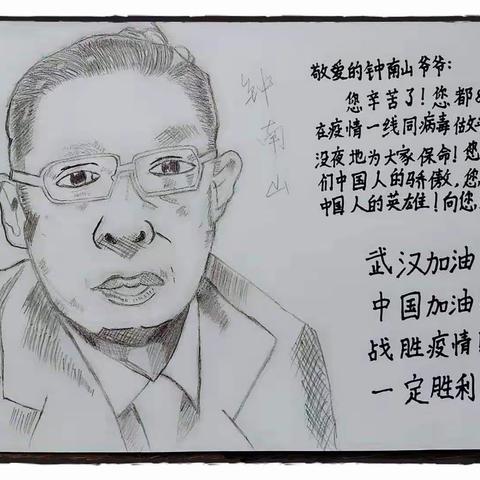 钟南山
敬爱的钟南山爷爷：
您辛苦了！您都
在疫情一线同病毒做
没夜地为大家保命！您
们中国人的骄傲，您
中国人的英雄！向您
武汉加油
中国加油
战胜疫情
一定胜利